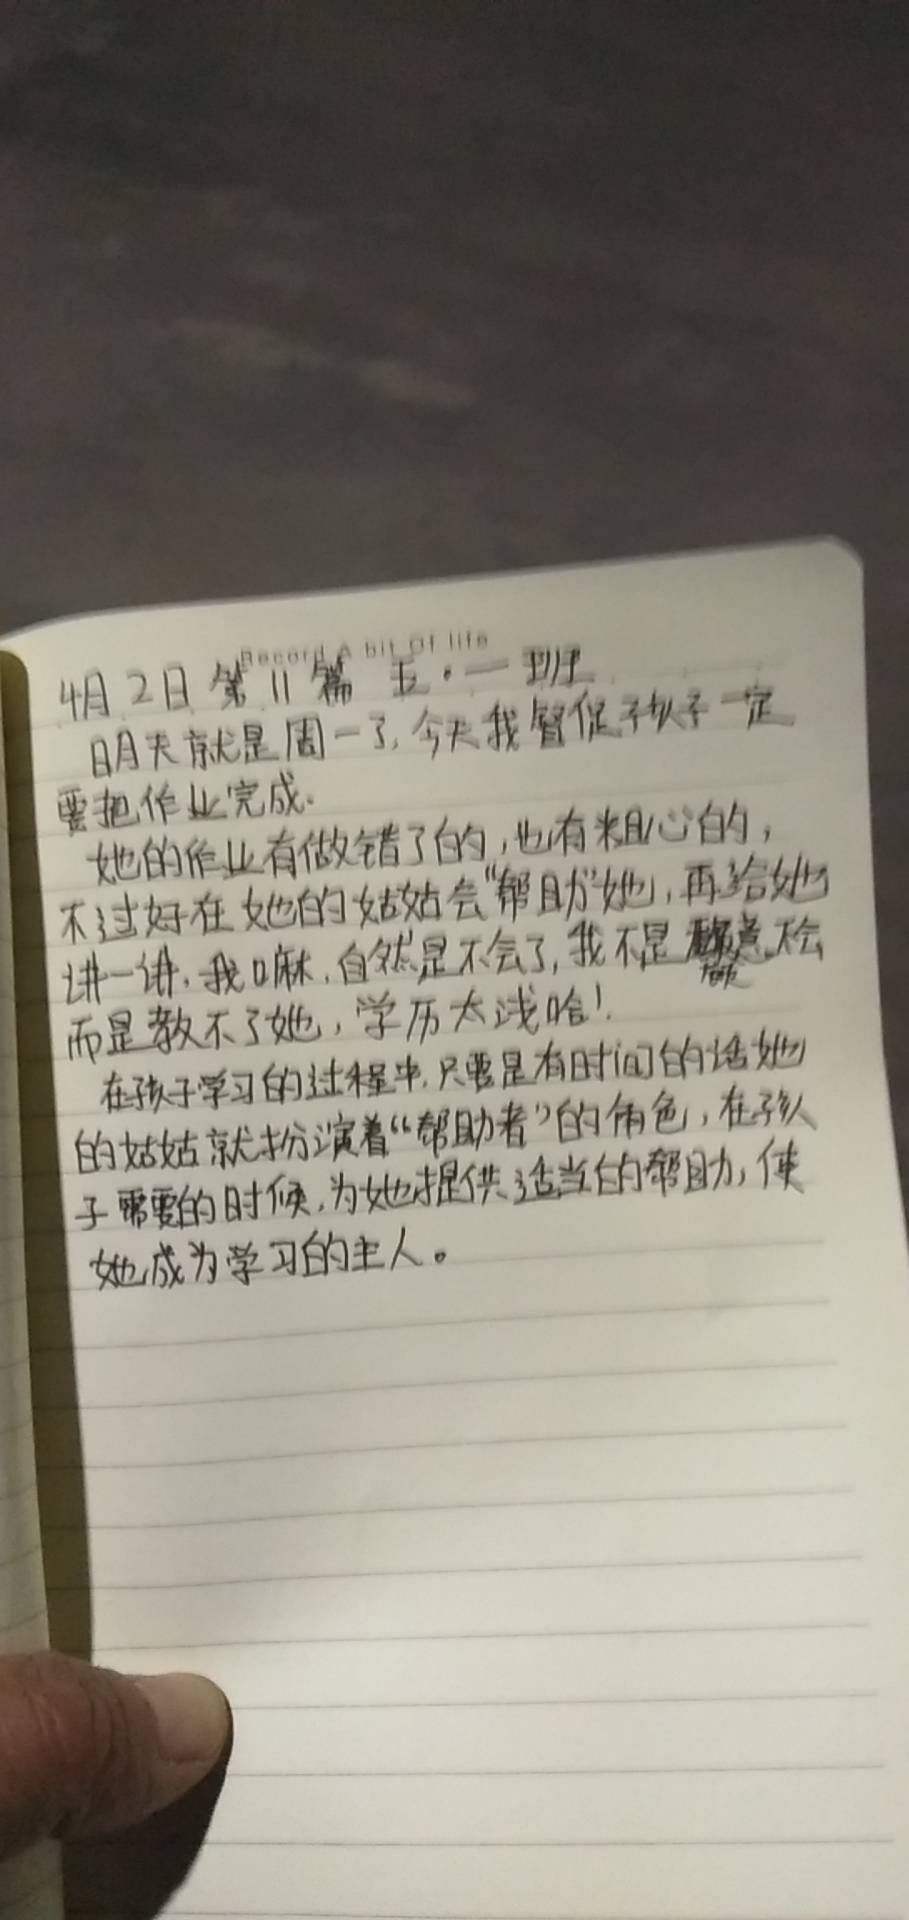 Record A bit Of life
4月2日 第11篇 五·一班
明天就是周一了,今天我督促孩子一定
要把作业完成.
她的作业有做错了的,也有粗心的,
不过好在她的姑姑会“帮助”她,再给她
讲一讲,我嘛,自然是不会了,我不是 不会
而是教不了她,学历太浅哈!
在孩子学习的过程中,只要是有时间的话她
的姑姑就扮演着“帮助者”的角色,在孩
子需要的时候,为她提供适当的帮助,使
她成为学习的主人。